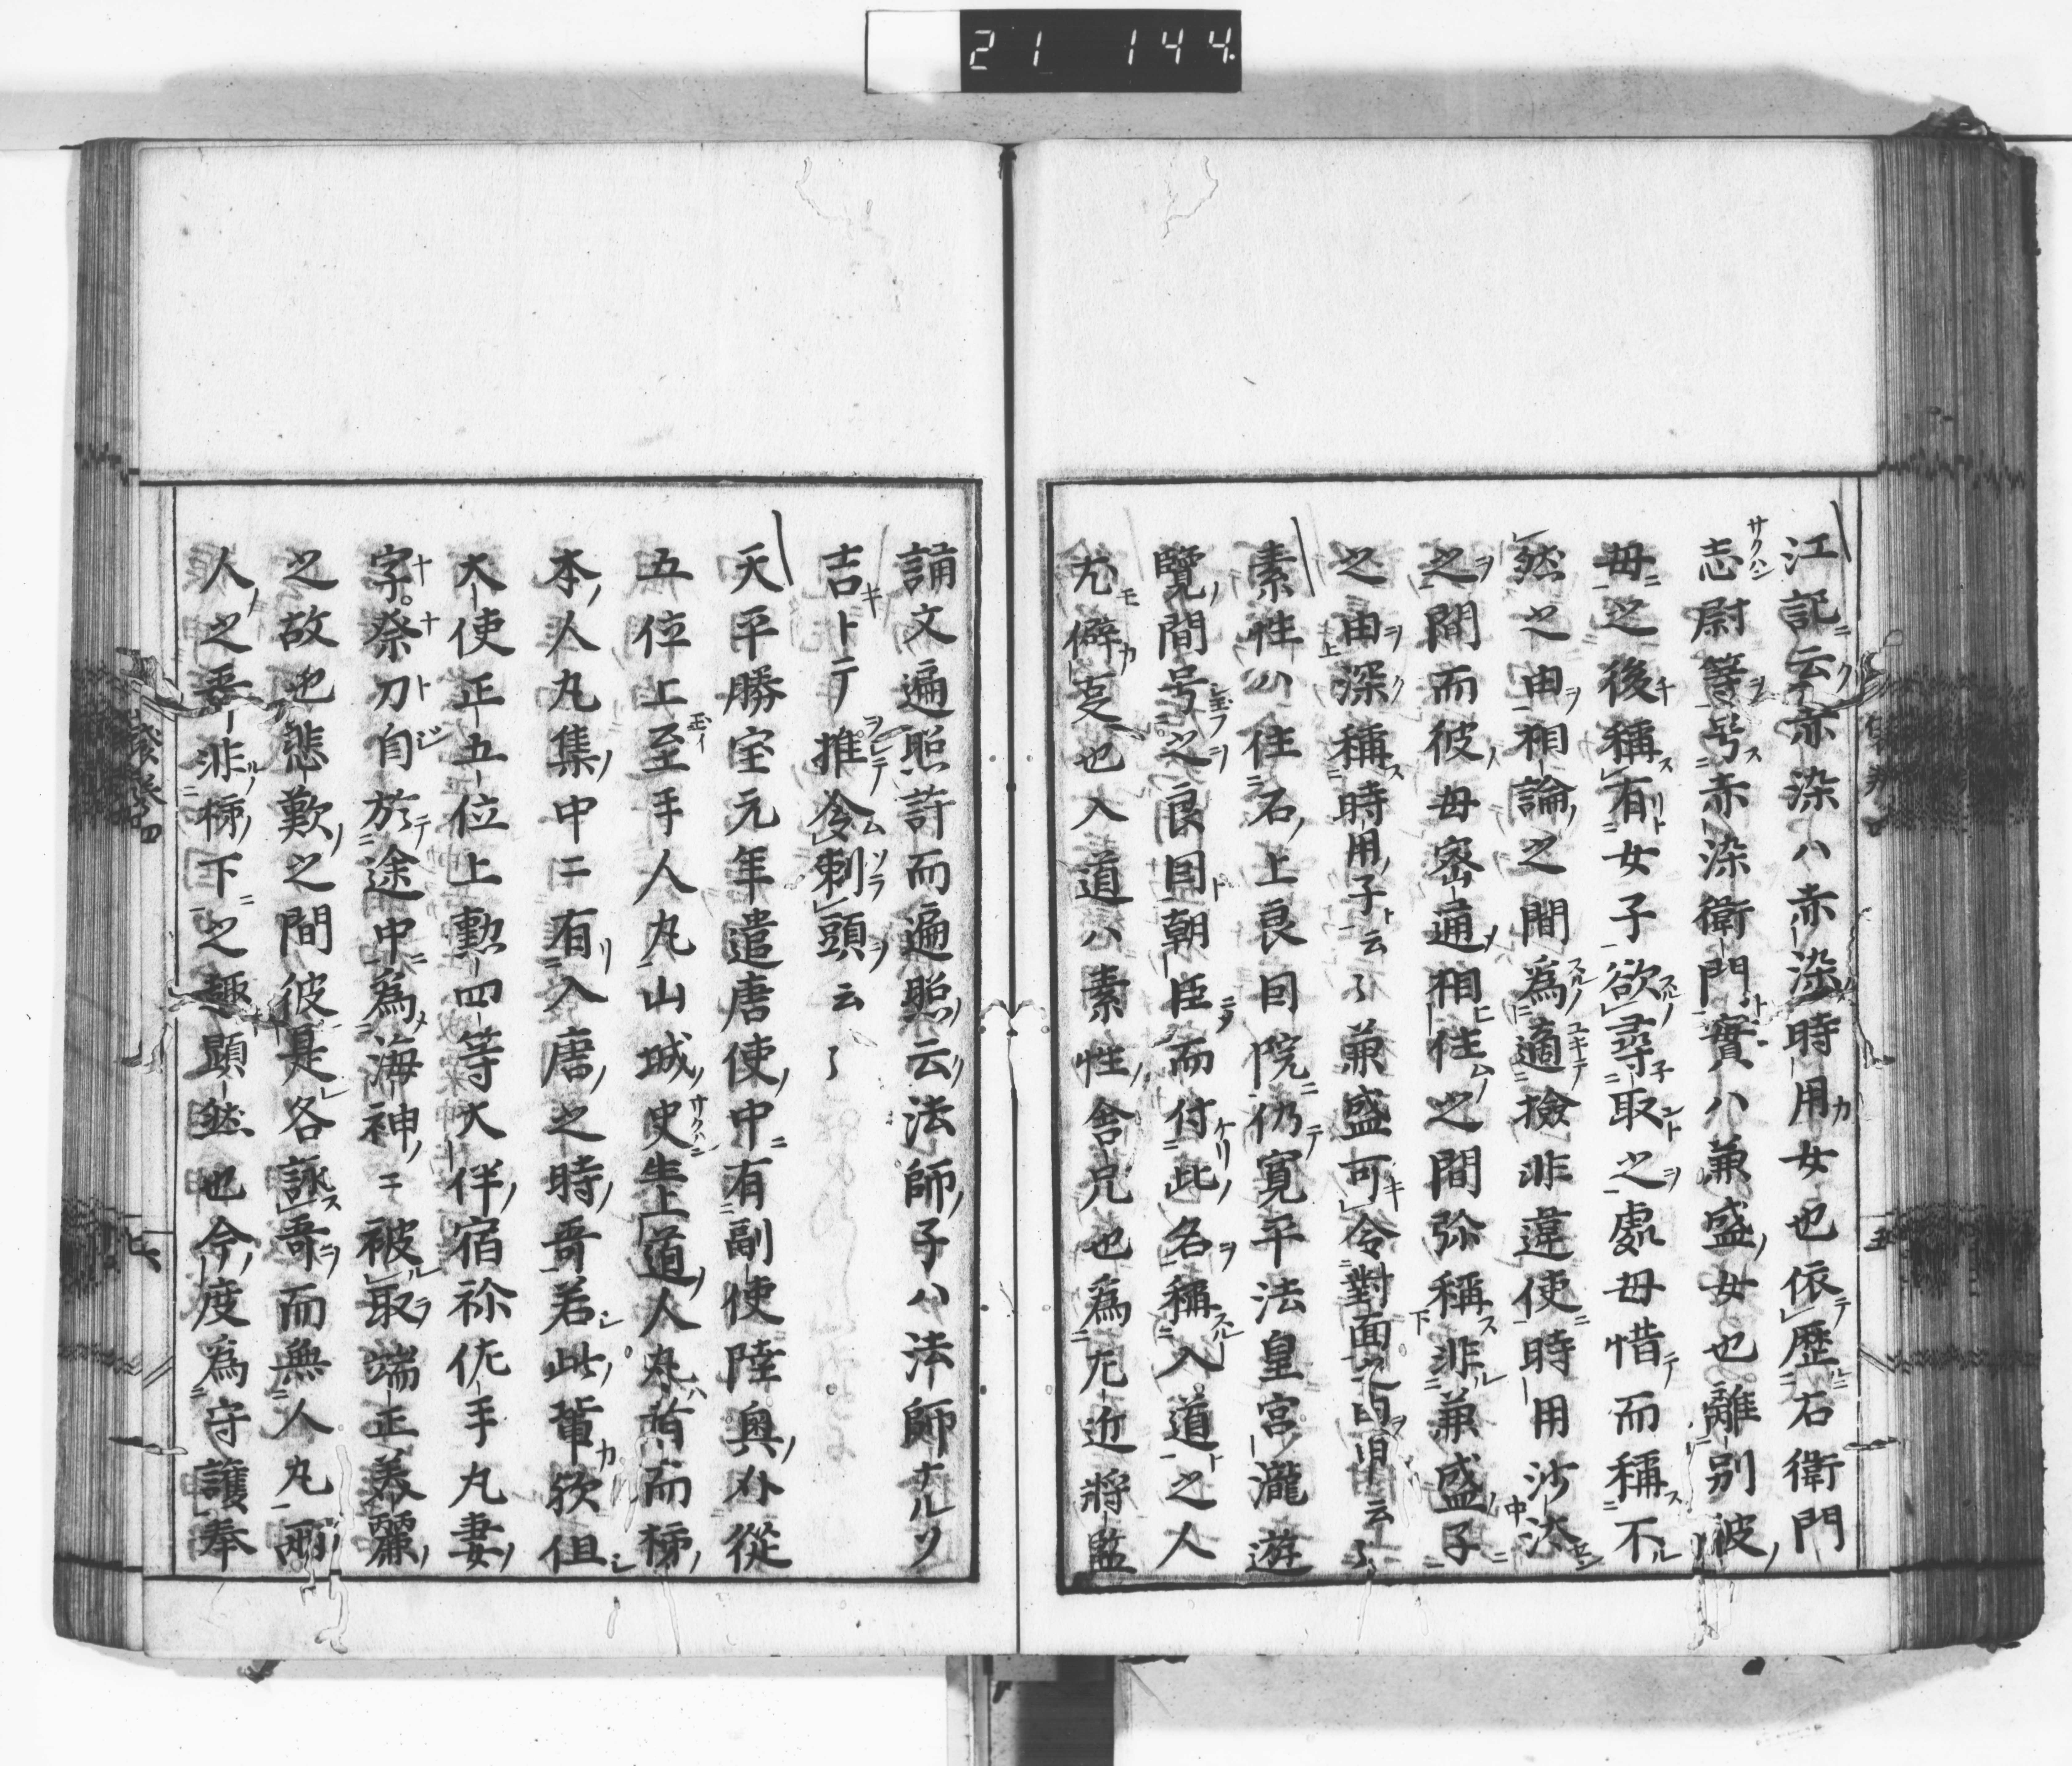 21 144
江記云赤染ハ赤染時用女也依歴右衛門
志尉等号赤染衛門實ハ兼盛女也離別彼
母之後稱有女子欲尋取之處母惜而稱不
然之由相論之間為適撿非違使時用沙汰
之間而彼母密通相住之間弥稱非兼盛子
之由深稱時用子云々兼盛可令對面之由申云々
素性ハ住石上良因院仍寛平法皇宮瀧遊
覽間号之良因朝臣而付此名稱入道之人
尤僻㕝也入道ハ素性舎兄也為左近將監
誦文遍照許而遍照云法師子ハ法師ナルソ
吉トテ推令剃頭云々
天平勝宝元年遣唐使中有副使陸奥介從
五位上至手人丸山城史生上道人丸首而柿
本人丸集中ニ有入唐之時哥若此輩欤但
大使正五位上勲四等大伴宿祢佐手丸妻
字祭刀自於途中為海神ニ被取端正美麗
之故也悲歎之間彼是各詠哥而無人丸哥
人之哥非柿下之趣顕然也今度為守護奉